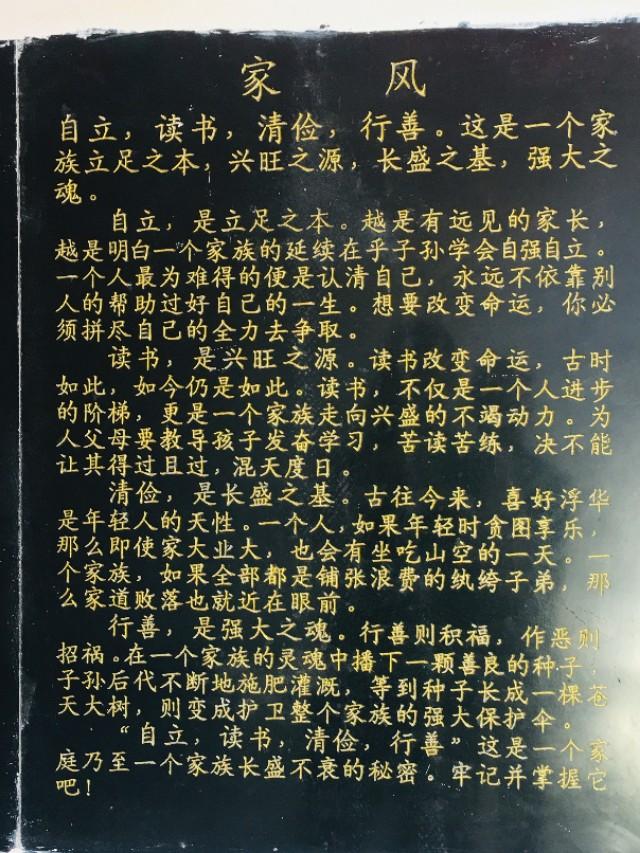 家 风
自立，读书，清俭，行善。这是一个家
族立足之本，兴旺之源，长盛之基，强大之
魂。
自立，是立足之本。越是有远见的家长，
越是明白一个家族的延续在乎子孙学会自强自立。
一个人最为难得的便是认清自己，永远不依靠别
人的帮助过好自己的一生。想要改变命运，你必
须拼尽自己的全力去争取。
读书，是兴旺之源。读书改变命运，古时
如此，如今仍是如此。读书，不仅是一个人进步
的阶梯，更是一个家族走向兴盛的不竭动力。为
人父母要教导孩子发奋学习，苦读苦练，决不能
让其得过且过，混天度日。
清俭，是长盛之基。古往今来，喜好浮华
是年轻人的天性。一个人，如果年轻时贪图享乐，
那么即使家大业大，也会有坐吃山空的一天。一
个家族，如果全部都是铺张浪费的纨绔子弟，那
么家道败落也就近在眼前。
行善，是强大之魂。行善则积福，作恶则
招祸。在一个家族的灵魂中播下一颗善良的种子，
子孙后代不断地施肥灌溉，等到种子长成一棵苍
天大树，则变成护卫整个家族的强大保护伞。
“自立，读书，清俭，行善”这是一个家
庭乃至一个家族长盛不衰的秘密。牢记并掌握它
吧！